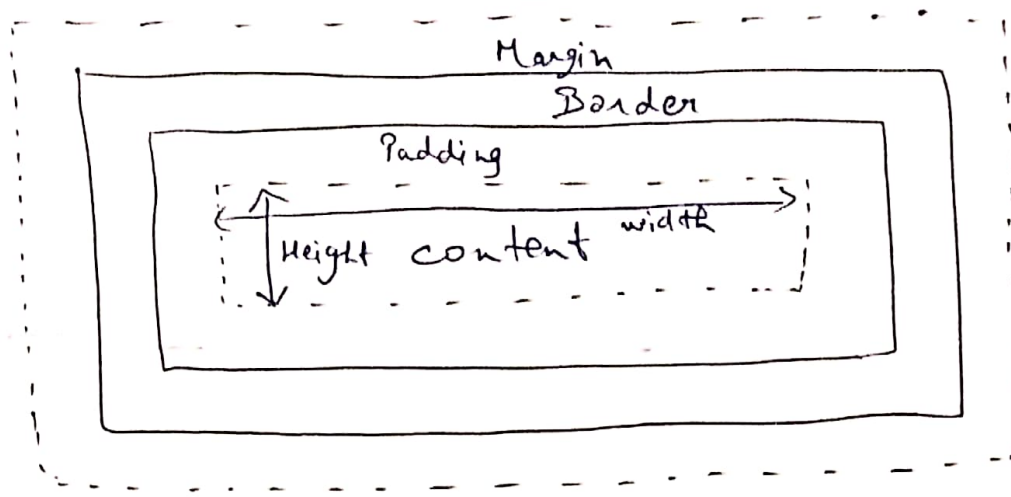 Margin
Border
Padding
width
Height content